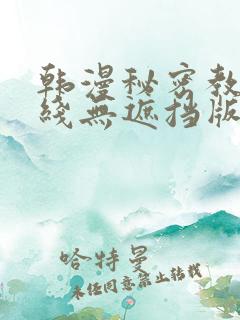 韩漫秘密教
线无遮挡版
哈特曼
未经同意禁止转载